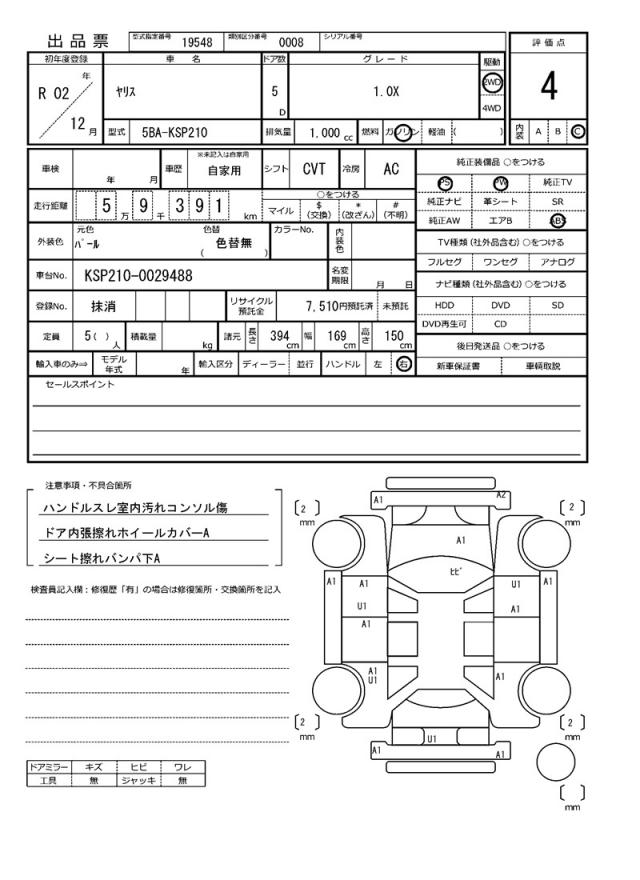 出品票 型式指定番号 19548 類別区分番号 0008 シリアル番号
初年度登録 車 名 ドア数 グレード 駆動 評価点
R 02 年 12 月 ヤリス 5 D 1.0X 2WD 4WD 4
型式 5BA-KSP210 排気量 1,000 cc 燃料 ガソリン 軽油 ( ) 内装 A B C
車検 年 月 車歴 ※未記入は自家用 自家用 シフト CVT 冷房 AC
走行距離 5 万 9 千 391 km ○をつける
マイル $ (交換) * (改ざん) # (不明)
外装色 元色 パール 色替 色替無 ( ) カラーNo. 内装色
車台No. KSP210-0029488 名変期限 月 日
登録No. 抹消 リサイクル預託金 7,510円預託済 未預託
定員 5( ) 人 積載量 kg 諸元 長さ 394 cm 幅 169 cm 高さ 150 cm
輸入車のみ⇒ モデル年式 年 輸入区分 ディーラー 並行 ハンドル 左 右
純正装備品 ○をつける
PS PW 純正TV
純正ナビ 革シート SR
純正AW エアB ABS
TV種類(社外品含む)○をつける
フルセグ ワンセグ アナログ
ナビ種類(社外品含む)○をつける
HDD DVD SD
DVD再生可 CD
後日発送品 ○をつける
新車保証書 車輌取説
セールスポイント
注意事項・不具合箇所
ハンドルスレ室内汚れコンソル傷
ドア内張擦れホイールカバーA
シート擦れバンパ下A
検査員記入欄：修復歴「有」の場合は修復箇所・交換箇所を記入
A1 A2
[ 2 ] mm [ 2 ] mm
A1
ヒビ
A1 A1 U1 A1
U1 A1
A1
A1 A1
U1
[ 2 ] mm [ 2 ] mm
U1
A1 A1
[ ] mm
ドアミラー キズ ヒビ ワレ
工具 無 ジャッキ 無